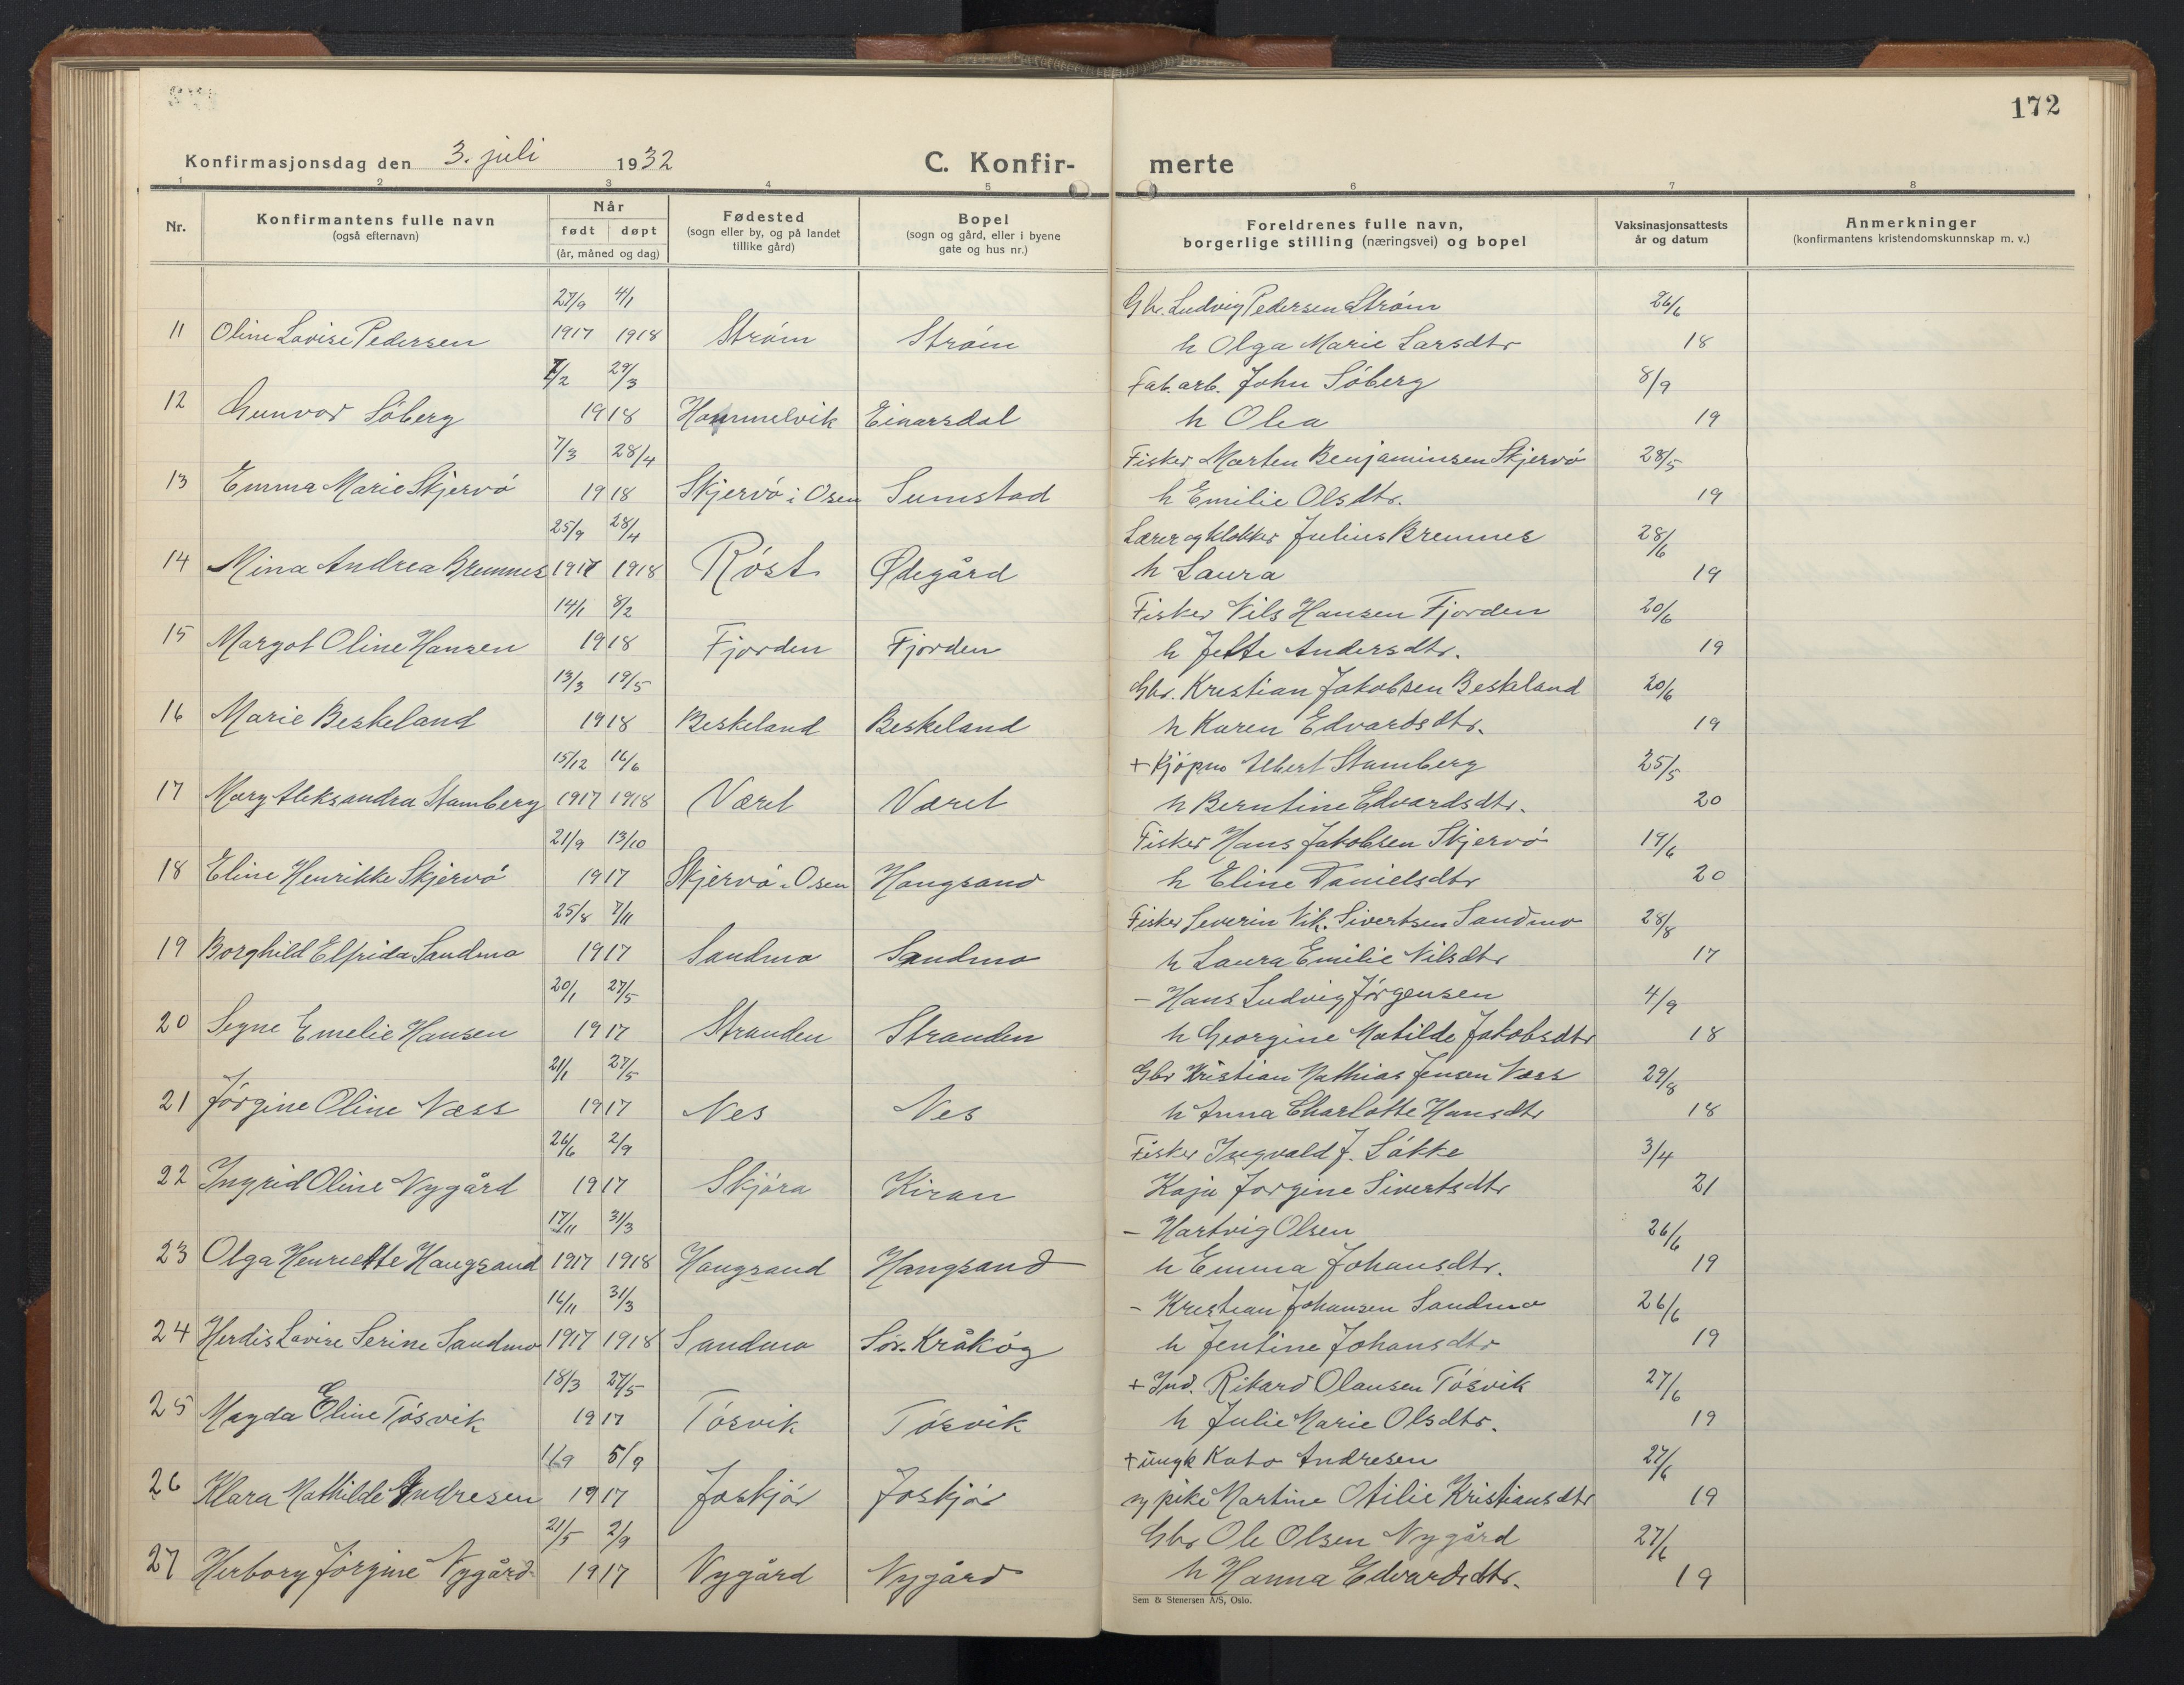 172
Konfirmasjonsdag den 3. juli 1932 C. Konfir- merte
1 2 3 4 5 6 7 8
Nr. Konfirmantens fulle navn (også efternavn) Når født døpt (år, måned og dag) Fødested (sogn eller by, og på landet tillike gård) Bopel (sogn og gård, eller i byene gate og hus nr.) Foreldrenes fulle navn, borgerlige stilling (næringsvei) og bopel Vaksinasjonsattests år og datum Anmerkninger (konfirmantens kristendomskunnskap m. v.)
27/9 4/1 Gbr. Ludvig Pedersen Strøm 26/6
11 Oline Lovise Pedersen 1917 1918 Strøm Strøm h Olga Marie Larsdtr 18
7/2 29/3 Fab.arb. John Søberg 8/9
12 Gunvor Søberg 1918 Hommelvik Einarsdal h Olea 19
7/3 28/4 Fisker Morten Benjaminsen Skjervø 28/5
13 Emma Marie Skjervø 1918 Skjervø i Osen Sumstad h Emilie Olsdtr. 19
25/9 28/4 Lærer og klokker Julius Bremnes 28/6
14 Mina Andrea Bremnes 1917 1918 Røst Ødegård h Laura 19
14/1 8/2 Fisker Nils Hansen Fjorden 20/6
15 Margot Oline Hansen 1918 Fjorden Fjorden h Jette Andersdtr. 19
13/3 19/5 Gbr. Kristian Jakobsen Beskeland 20/6
16 Marie Beskeland 1918 Beskeland Beskeland h Karen Edvardsdtr. 19
15/12 16/6 + kjøpm Albert Stamberg 25/5
17 Mary Aleksandra Stamberg 1917 1918 Været Været h Berntine Edvardsdtr. 20
21/9 13/10 Fisker Hans Jakobsen Skjervø 19/6
18 Eline Henrikke Skjervø 1917 Skjervø i Osen Hongsand h Eline Danielsdtr 20
25/8 7/11 Fisker Severin Nik. Sivertsen Sandmo 28/8
19 Borghild Elfrida Sandmo 1917 Sandmo Sandmo h Laura Emilie Nilsdtr 17
20/1 27/5 - Hans Ludvig Jørgensen 4/9
20 Segne Emelie Hansen 1917 Stranden Stranden h Georgine Matilde Jakobsdtr 18
21/1 27/5 Gbr Kristian Mathias Jensen Næss 29/8
21 Jørgine Oline Næss 1917 Nes Nes h Anna Charlotte Hansdtr 18
26/6 2/9 Fisker Ingvald J. Løkke 3/4
22 Ingrid Oline Nygård 1917 Skjøra Kiran Kaja Jørgine Sivertsdtr 21
17/11 31/3 - Hartvig Olsen 26/6
23 Olga Henriette Haugsand 1917 1918 Hougsand Hangsand h Emma Johansdtr. 19
16/11 31/3 - Kristian Johansen Sandmo 26/6
24 Herdis Lovise Serine Sandmo 1917 1918 Sandmo Sør-Kråkøy h Jentine Johansdtr 19
18/3 27/5 + Ind. Rikard Olausen Tøsvik 27/6
25 Magda Eline Tøsvik 1917 Tøsvik Tøsvik h Julie Marie Olsdtr. 19
1/9 5/9 + ungk Kato Andresen 27/6
26 Klara Mathilde Andresen 1917 Joskjør Joskjør og pike Martine Otilie Kristiansdtr 19
21/5 2/9 Gbr Ole Olsen Nygård 27/6
27 Herborg Jørgine Nygård 1917 Nygård Nygård h Hanna Edvardsdtr. 19
Sem & Stenersen A/S, Oslo.